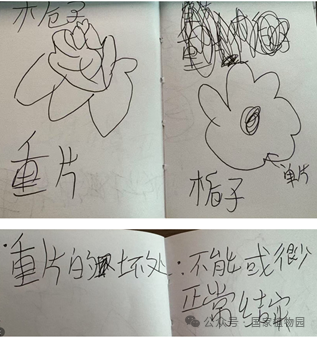 水栀子
重片
重
栀子
单片
·重片的坏处:不能或很少
正常结实
公众号·国家植物园